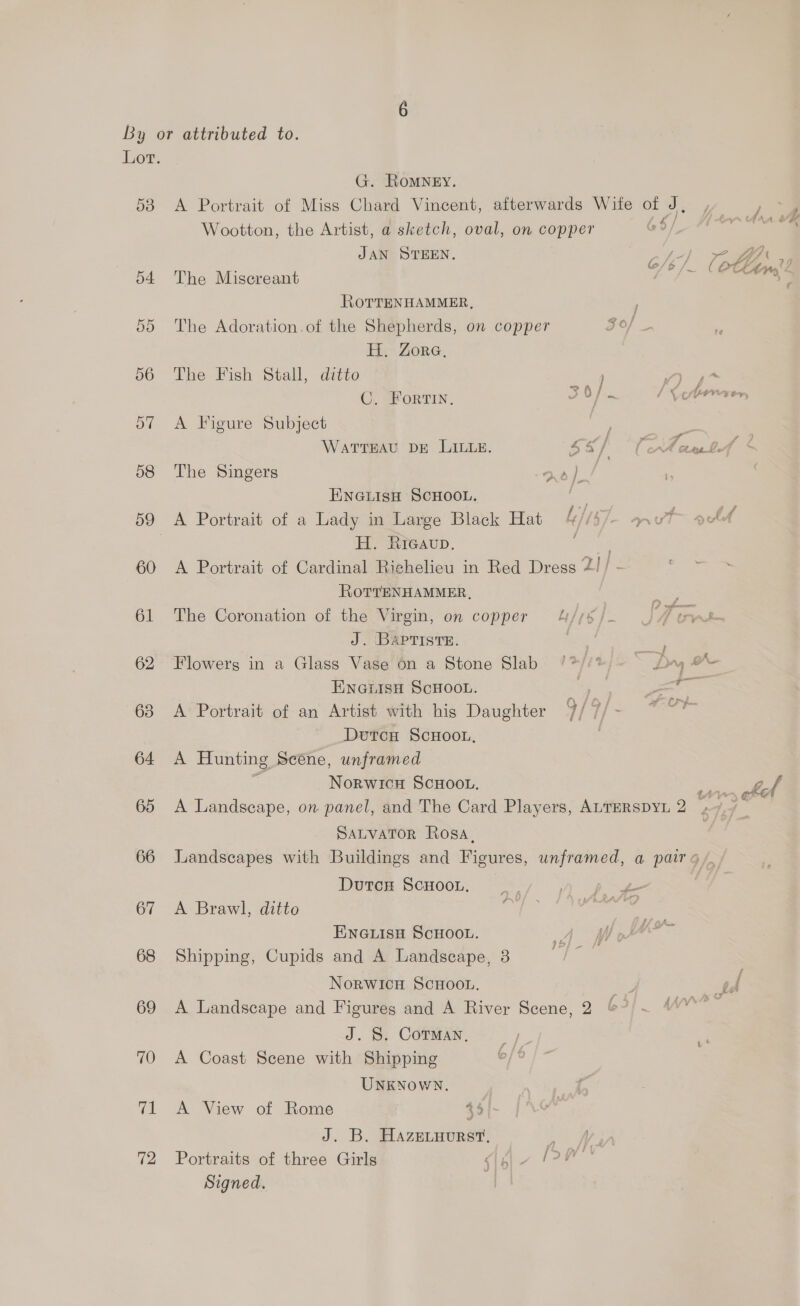 6
By or attributed to.
Lot.
G. Romney.
53 A Portrait of Miss Chard Vincent, afterwards Wife of J.
Wootton, the Artist, a sketch, oval, on copper 65/-
Jan Steen.
54 The Miscreant 6/6/- Collings
Rottenhammer.
55 The Adoration of the Shepherds, on copper 30/-
H. Zorg.
56 The Fish Stall, ditto
C. Fortin. 30/-
57 A Figure Subject
Watteau de Lille. 55/
58 The Singers
English School.
59 A Portrait of a Lady in Large Black Hat 4/15/- not sold
H. Rigaud.
60 A Portrait of Cardinal Richelieu in Red Dress 21/-
Rottenhammer.
61 The Coronation of the Virgin, on copper
J. Baptiste.
62 Flowers in a Glass Vase on a Stone Slab
English School.
63 A Portrait of an Artist with his Daughter
Dutch School.
64 A Hunting Scene, unframed
Norwich School.
65 A Landscape, on panel, and The Card Players, Alterspyl 2
Salvator Rosa.
66 Landscapes with Buildings and Figures, unframed, a pair
Dutch School.
67 A Brawl, ditto
English School.
68 Shipping, Cupids and A Landscape, 3
Norwich School.
69 A Landscape and Figures and A River Scene, 2
J. S. Cotman.
70 A Coast Scene with Shipping
Unknown.
71 A View of Rome
J. B. Hazelhurst.
72 Portraits of three Girls
Signed.